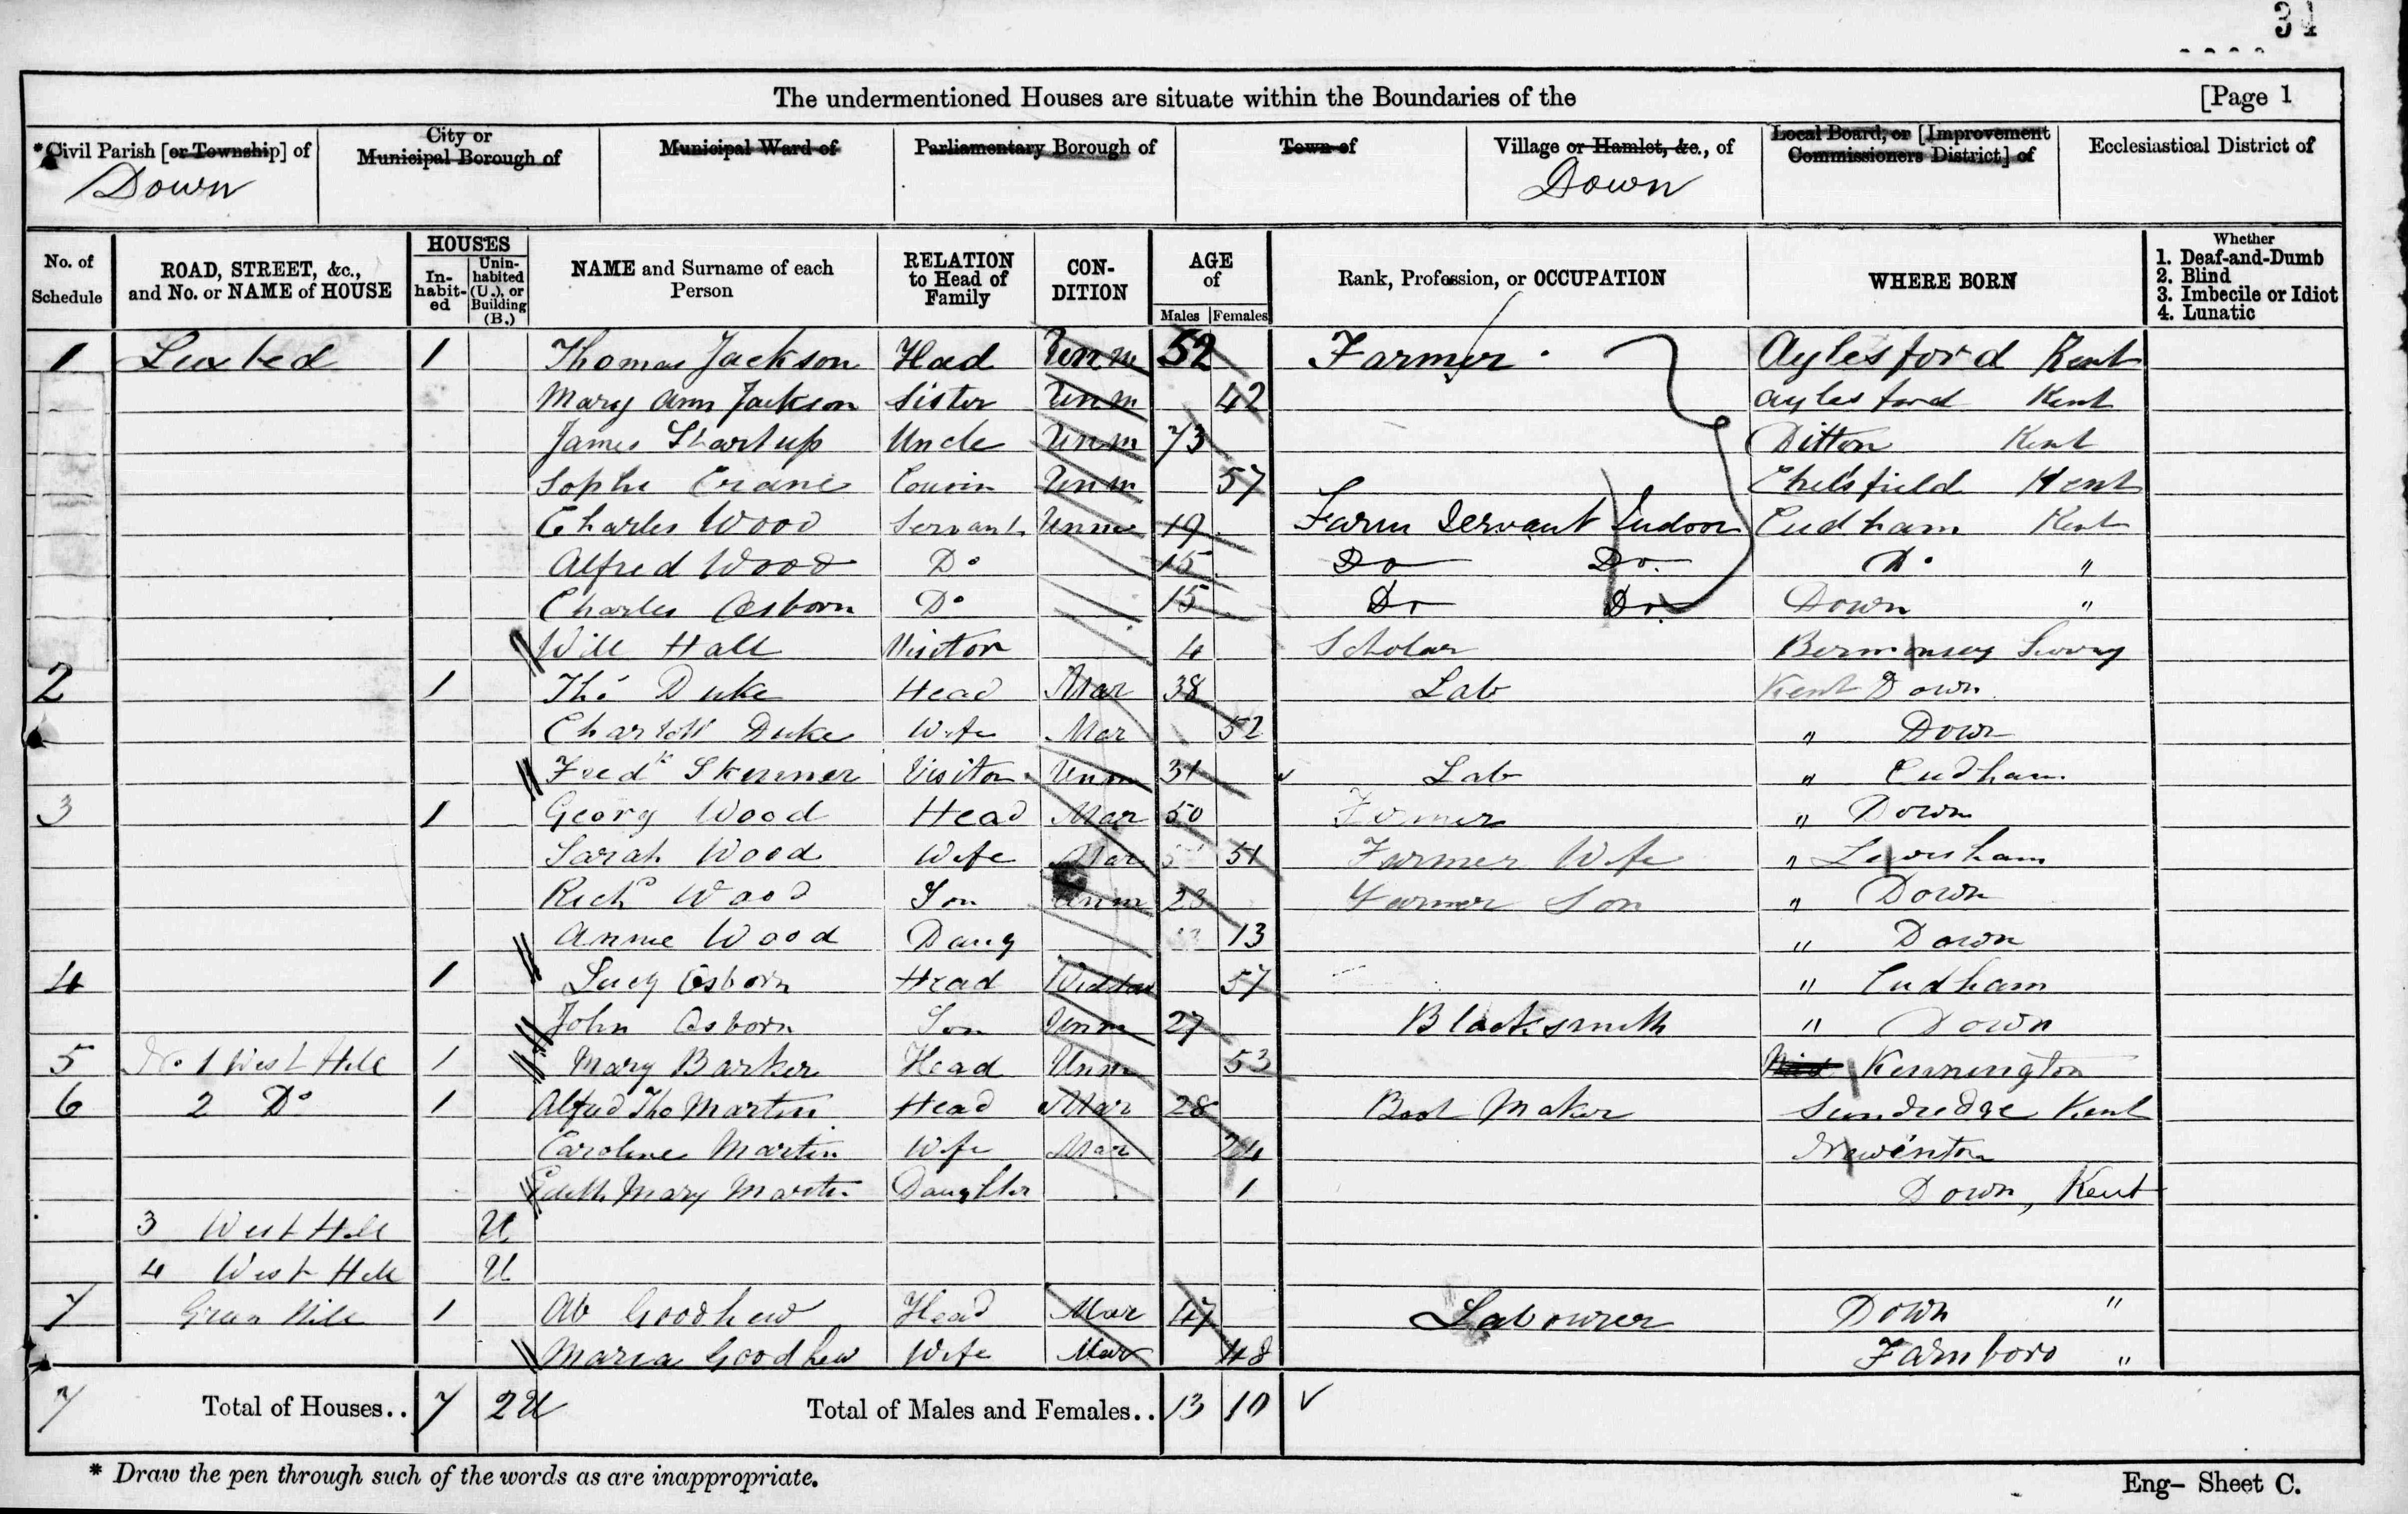 34
The undermentioned Houses are situate within the Boundaries of the [Page 1
*Civil Parish [or Township] of City or Municipal Borough of Municipal Ward of Parliamentary Borough of Town of Village or Hamlet, &c., of Local Board, or [Improvement Commissioners District] of Ecclesiastical District of
Down Down
No. of Schedule ROAD, STREET, &c., and No. or NAME of HOUSE HOUSES Inhabited Uninhabited (U.), or Building (B.) NAME and Surname of each Person RELATION to Head of Family CONDITION AGE of Males Females Rank, Profession, or OCCUPATION WHERE BORN Whether 1. Deaf-and-Dumb 2. Blind 3. Imbecile or Idiot 4. Lunatic
1 Luxted 1 Thomas Jackson Head Unm 52 Farmer Aylesford Kent
Mary Ann Jackson Sister Unm 42 Aylesford Kent
James Startup Uncle Unm 73 Ditton Kent
Crane Cousin Unm 57 Chelsfield Kent
Charles Wood Servant Unm 19 Farm Servant Indoor Cudham Kent
Alfred Wood Do 15 Do Do Do "
Charles Osborn Do 15 Do Do Down "
Will Hall Visitor 4 Scholar Bermonsey Surry
2 1 Tho Duke Head Mar 38 Lab Kent Down
Duke Wife Mar 52 " Down
Fredk Skinner Visitor Unm 31 Lab " Cudham
3 1 Georg Wood Head Mar 50 Farmer " Down
Sarah Wood Wife Mar 51 Farmer Wife " Lewisham
Richd Wood Son Unm 23 Farmer Son " Down
Annie Wood Daug 13 " Down
4 1 Lucy Osborn Head 57 " Cudham
John Osborn Son Unm 27 Blacksmith " Down
5 No 1 West Hill 1 Mary Barker Head Unm 53 Kennington
6 2 Do 1 Alfred Tho Martin Head Mar 28 Boot Maker Sundredge Kent
Caroline Martin Wife Mar 24 Newinton
Edith Mary Martin Daughter 1 Down, Kent
3 West Hill U
4 West Hill U
7 Green Hill 1 Ab Goodhew Head Mar 47 Labourer Down "
Maria Goodhew Wife Mar 48 Farnboro "
7 Total of Houses.. 7 2U Total of Males and Females.. 13 10
* Draw the pen through such of the words as are inappropriate. Eng- Sheet C.